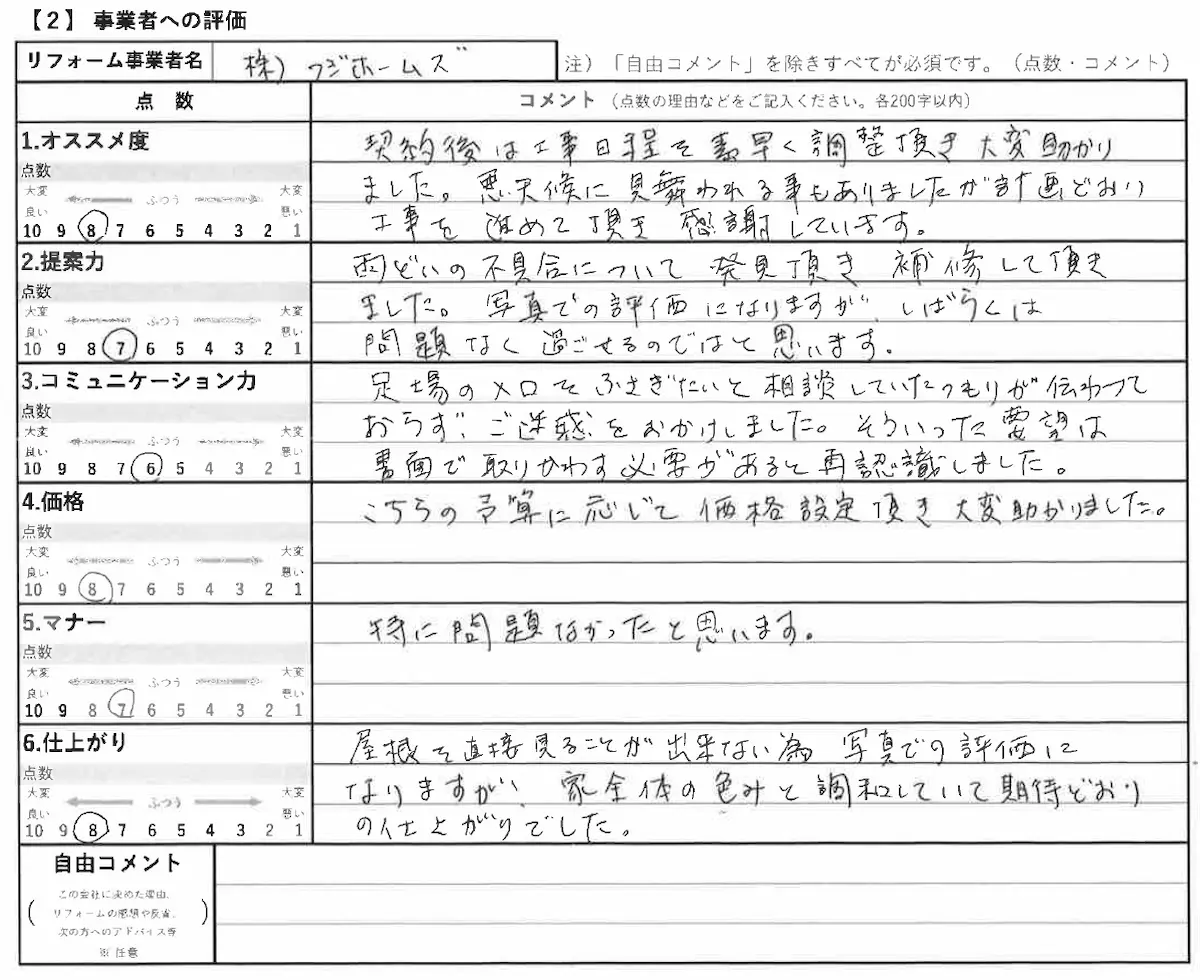 【2】 事業者への評価
リフォーム事業者名 株) フジホームズ 注）「自由コメント」を除きすべてが必須です。（点数・コメント）
点 数 コメント （点数の理由などをご記入ください。各200字以内）
1.オススメ度
点数
大変 ふつう 大変
良い 悪い
10 9 8 7 6 5 4 3 2 1
契約後は工事日程を素早く調整頂き大変助かり
ました。悪天候に見舞われる事もありましたが計画どおり
工事を進めて頂き感謝しています。
2.提案力
点数
大変 ふつう 大変
良い 悪い
10 9 8 7 6 5 4 3 2 1
雨どいの不具合について発見頂き補修して頂き
ました。写真での評価になりますが、しばらくは
問題なく過ごせるのではと思います。
3.コミュニケーション力
点数
大変 ふつう 大変
良い 悪い
10 9 8 7 6 5 4 3 2 1
足場のメロをふさぎたいと相談していたつもりが伝わって
おらず、ご迷惑をおかけしました。そういった要望は
書面で取りかわす必要があると再認識しました。
4.価格
点数
大変 ふつう 大変
良い 悪い
10 9 8 7 6 5 4 3 2 1
こちらの予算に応じて価格設定頂き大変助かりました。
5.マナー
点数
大変 ふつう 大変
良い 悪い
10 9 8 7 6 5 4 3 2 1
特に問題なかったと思います。
6.仕上がり
点数
大変 ふつう 大変
良い 悪い
10 9 8 7 6 5 4 3 2 1
屋根を直接見ることが出来ない為写真での評価に
なりますが、家全体の色みと調和していて期待どおり
の仕上がりでした。
自由コメント
この会社に決めた理由、
リフォームの感想や反省、
次の方へのアドバイス等
※任意